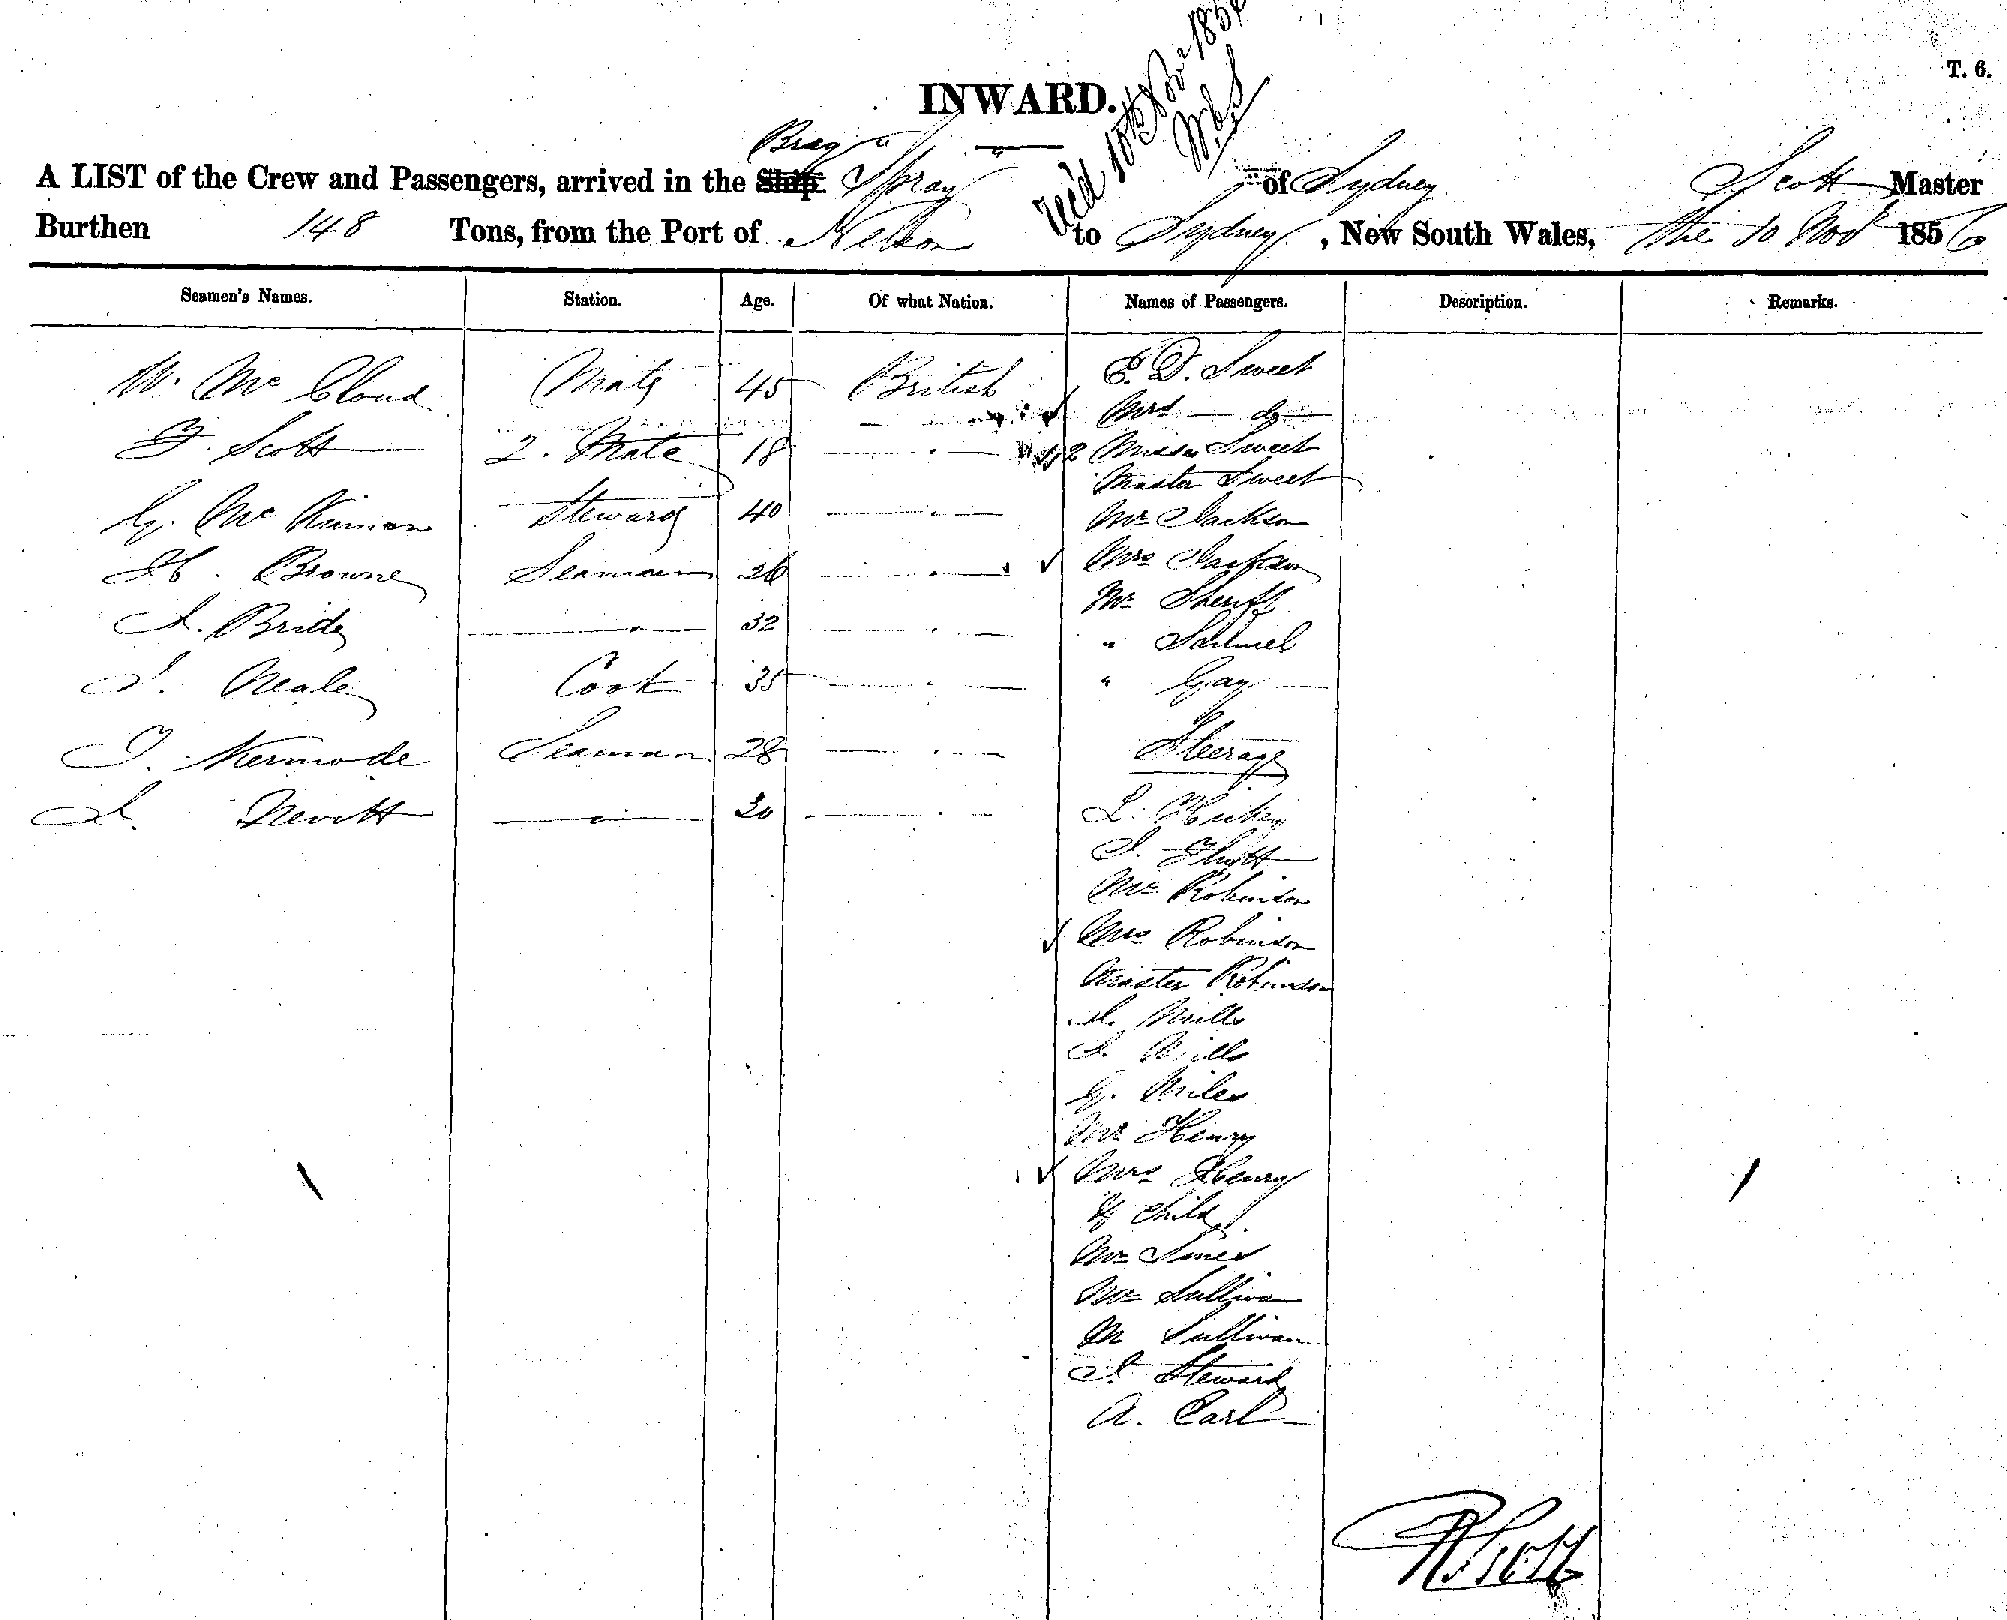 T. 6.
INWARD.
Rec'd 10th Novr 185
Brig " "
A LIST of the Crew and Passengers, arrived in the Ship Spray of Sydney Scott Master
Burthen 148 Tons, from the Port of Nelson to Sydney, New South Wales, the 10 Novr 1856
Seamen's Names. Station. Age. Of what Nation. Names of Passengers. Description. Remarks.
W. Mc Cloud Mate 45 British E. D. Sweet
Mrs — do —
F. Scott 2. Mate 18 — " — 2 Misses Sweet
Master Sweet
G. Mc Kinnon Steward 40 — " — Mr Jackson
H. Browne Seaman 26 — " — Mrs Jackson
Mr Sheriff
J. Bride — " — 32 — " — " Samuel
J. Neale Cook 35 — " — " Gay
T. Kermode Seaman 28 — " — Steerage
J. Nevitt — " — 30 — " — L. Hickey
J.
Mr Robinson
Mrs Robinson
Master Robinson
J. Mills
J. Mills
G. Miles
Mr Henry
Mrs Henry
& Child
Mr
Mr Sullivan
M Sullivan
J. Steward
A. Earl
R Scott